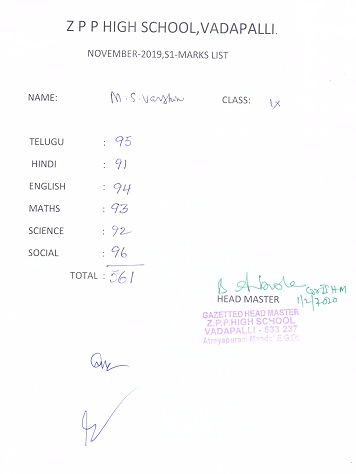 Z P P HIGH SCHOOL,VADAPALLI.
NOVEMBER-2019,S1-MARKS LIST
NAME: M.S.Varshini CLASS: IX
TELUGU : 95
HINDI : 91
ENGLISH : 94
MATHS : 93
SCIENCE : 92
SOCIAL : 96
TOTAL : 561
Gr II H M
HEAD MASTER 1/2/2020
GAZETTED HEAD MASTER
Z.P.P.HIGH SCHOOL
VADAPALLI - 533 237
Atreyapuram Mandal E.G.Dt.